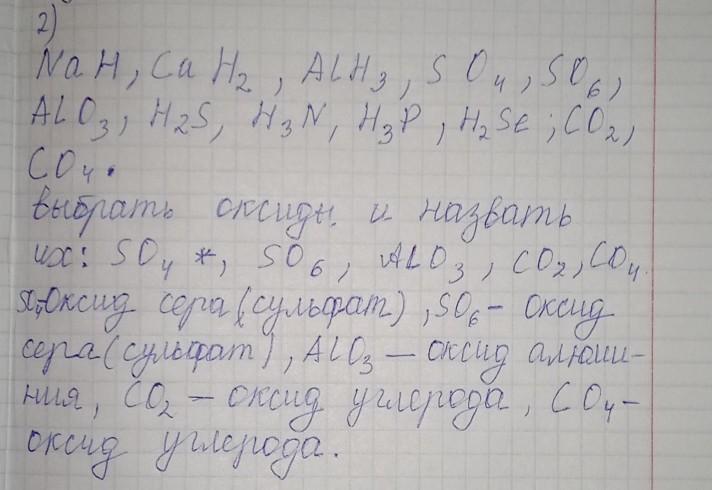 2)
NaH, CaH₂, ALH₃, SO₄, SO₆,
ALO₃, H₂S, H₃N, H₃P, H₂Se; CO₂,
CO₄.
выбрать оксиды и назвать
их: SO₄ *, SO₆, ALO₃, CO₂, CO₄.
оксид сера (сульфат), SO₆ – оксид
сера (сульфат), ALO₃ – оксид алюми-
ния, CO₂ – оксид углерода, CO₄ –
оксид углерода.